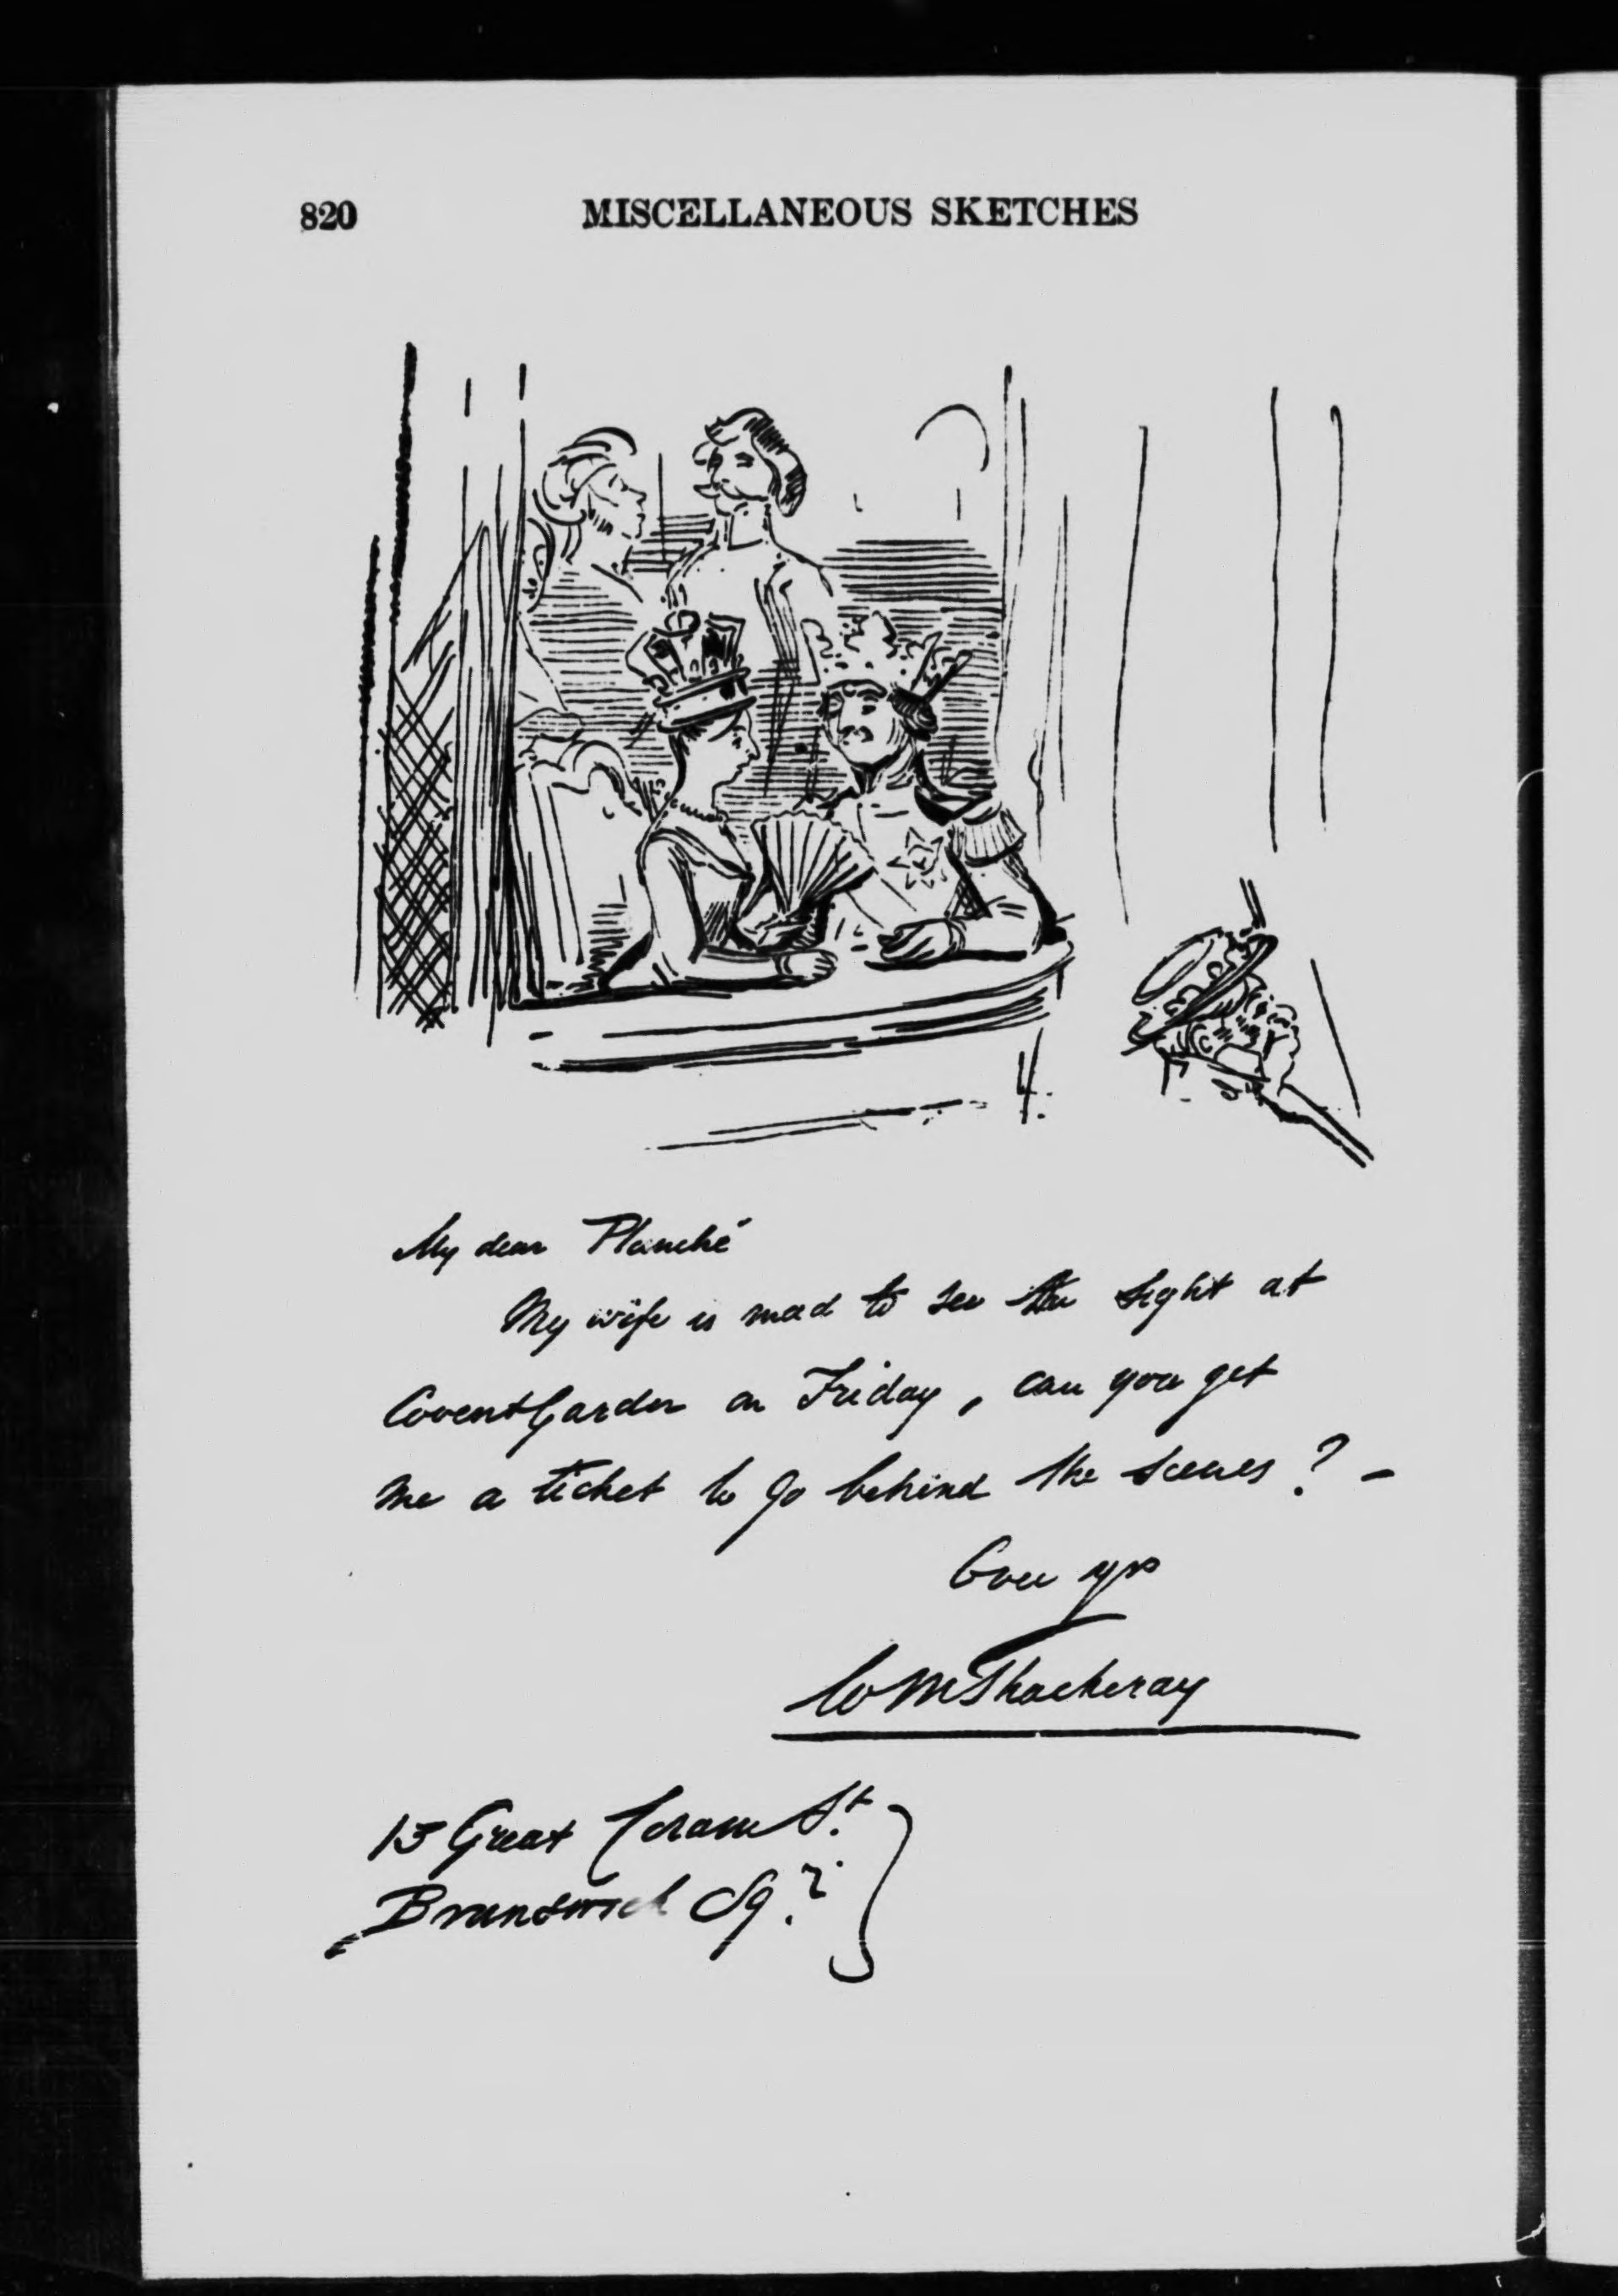 820 MISCELLANEOUS SKETCHES
My dear Planché
My wife is mad to see the sight at
Covent Garden on Friday, can you get
me a ticket to go behind the scenes? —
Ever yrs
WMThackeray
13 Great Coram St.
Brunswick Sqr.